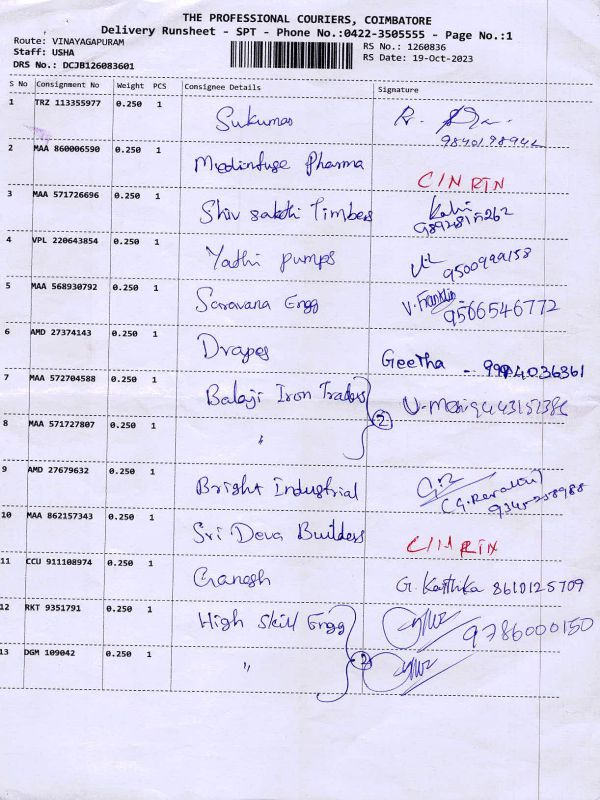 THE PROFESSIONAL COURIERS, COIMBATORE
Delivery Runsheet - SPT - Phone No.:0422-3505555 - Page No.:1
Route: VINAYAGAPURAM
RS No.: 1260836
Staff: USHA
RS Date: 19-Oct-2023
DRS No.: DCJB126083601
S No Consignment No Weight PCS Consignee Details Signature
1 TRZ 113355977 0.250 1 Sukumar R.
2 MAA 860006590 0.250 1 Medinfuse Pharma C/N RTN
3 MAA 571726696 0.250 1 Shiv sakthi Timbers
4 VPL 220643854 0.250 1 Yathi pumps 9500999158
5 MAA 568930792 0.250 1 Saravana Engg V. Franklin 9566546772
6 AMD 27374143 0.250 1 Drapes Geetha -
7 MAA 572704588 0.250 1 Balaji Iron Traders
8 MAA 571727807 0.250 1 " 2
9 AMD 27679632 0.250 1 Bright Industrial
10 MAA 862157343 0.250 1 Sri Deva Builders C/N RTN
11 CCU 911108974 0.250 1 Ganesh G. Karthika 8610125709
12 RKT 9351791 0.250 1 High Skill Engg 9786000150
13 DGM 109042 0.250 1 " 2